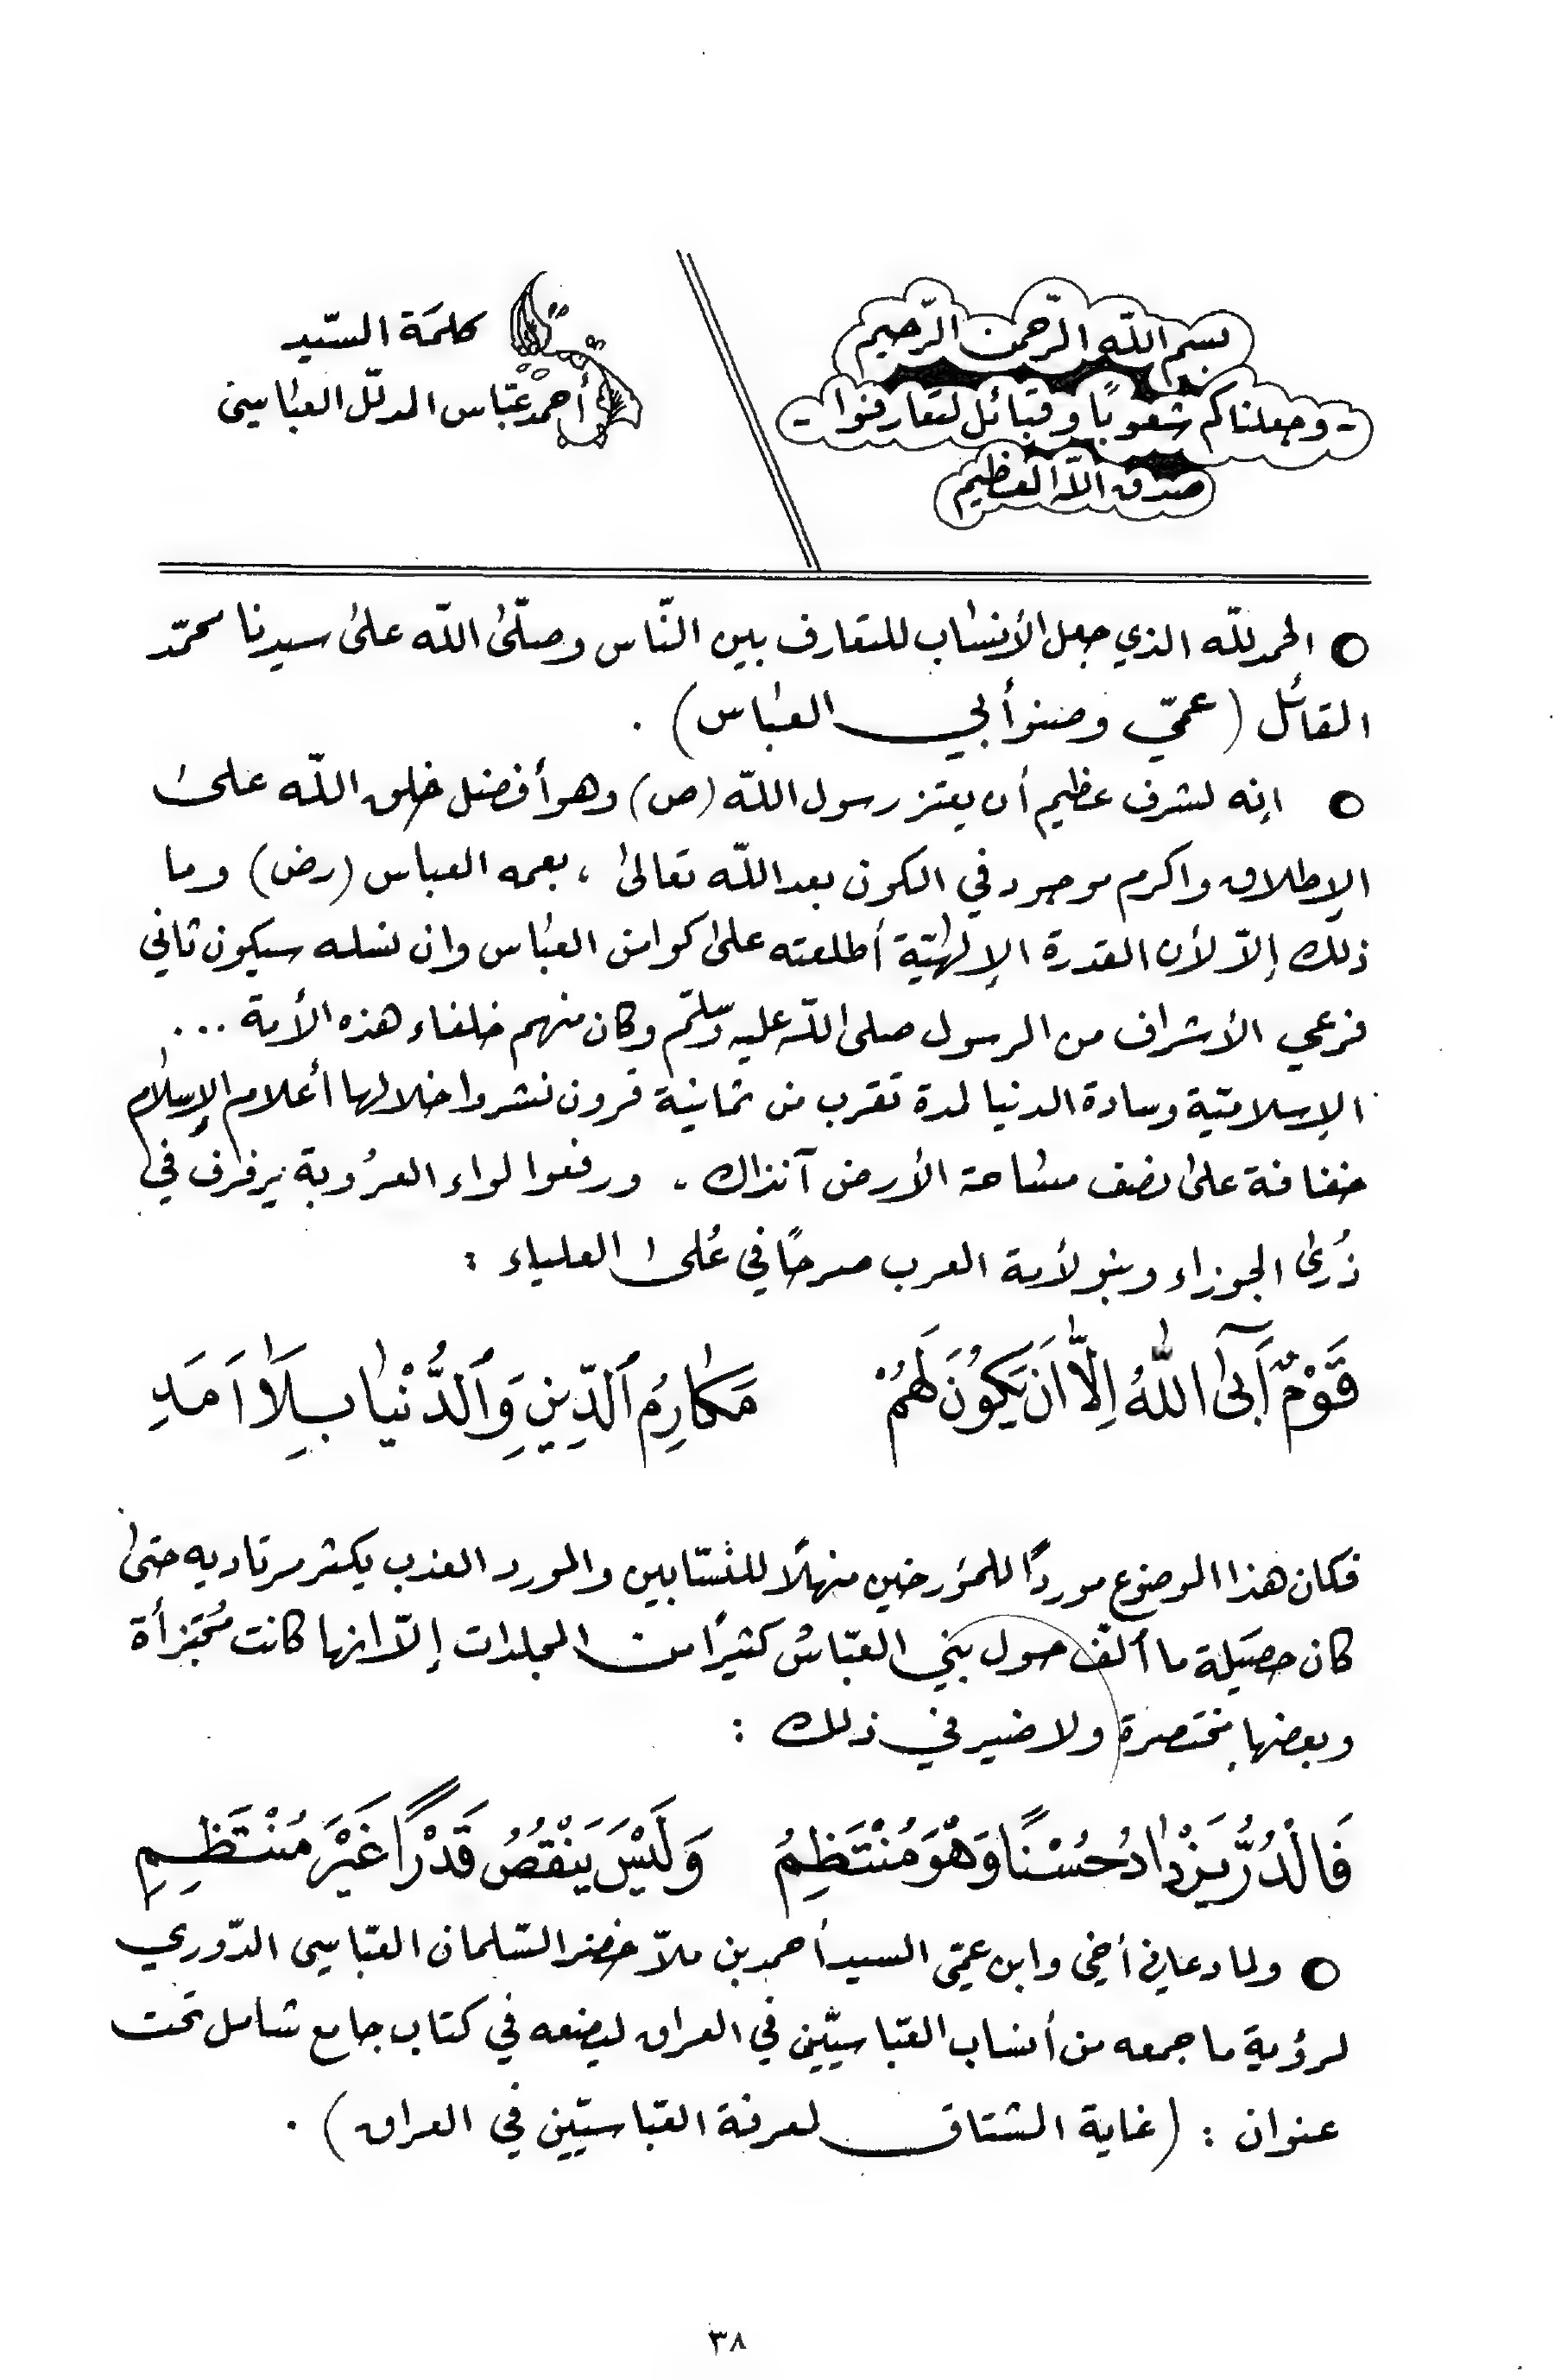 بسم الله الرّحمن الرّحيم
- وجعلناكم شعوبًا وقبائل لتعارفوا -
صدق الله العظيم
كلمَة السّيد
أحمد عبّاس المدلّل العبّاسي
الحمد للّه الذي جعل الأنسَاب للتعارف بين النّاس وصلّىٰ اللّه علىٰ سيدنا محمّد
القائل (عميّ وصنو أبي العبّاس) .
إنه لشرف عظيم أن يعتز رسول اللّه (ص) وهو أفضل خلق اللّه علىٰ
الإطلاق واكرم موجود في الكون بعد اللّه تعالىٰ ، بعمه العباس (رض) وما
ذلك إلاّ لأن القدرة الإلٰهيّة أطلعته علىٰ كوامن العبّاس وان نسله سيكون ثاني
فرعي الأشراف من الرسول صلى اللّه عليه وسلّم وكان منهم خلفاء هذه الأمة ...
الإسلاميّة وسادة الدنيا لمدة تقرب من ثمانية قرون نشروا خلالها أعلام الإسلام
خفاقة علىٰ نصف مسَاحة الأرض آنذاك . ورفعوا لواء العرُوبة يرفرف في
ذُرىٰ الجوزاء وبنو لأمة العرب صرحًا في عُلىٰ العلياء :
قَوْمٌ أَبىٰ اللّٰهُ اِلّاَ اَنَ يَكُوُنَ لَهُمْ مَكَارِمُ ٱلدِّينِ وَٱلدُّنْيٰا بِلَا اَمَدِ
فكان هذا الموضوع موردًا للمؤرخين منهلًا للنسّابين والمورد العذب يكثر مرتاديه حتىٰ
كان حصَيلة ما ألّف حول بني العبّاسُ كثيرًا من المجلدات إلاّ انها كانت مُجَتزأة
وبعضها مختصرة ولا ضير في ذلك :
فَالْدُرُّ يَزْدٰادُ حُسْنًا وَهْوَ مُنْتَظِمُ وَلَيْسَ يَنْقُصُ قَدْرًا غَيْرَ مُنْتَظِمِ
ولما دعاني أخي وابن عمّي السيد أحمد بن ملاّ خضر السّلمان العبّاسي الدّوري
لرؤية ما جمعه من أنساب العبّاسيّين في العراق ليضعه في كتاب جامع شامل تحت
عنوان : (غاية المشتاق لمعرفة العبّاسيّين في العراق) .
٣٨